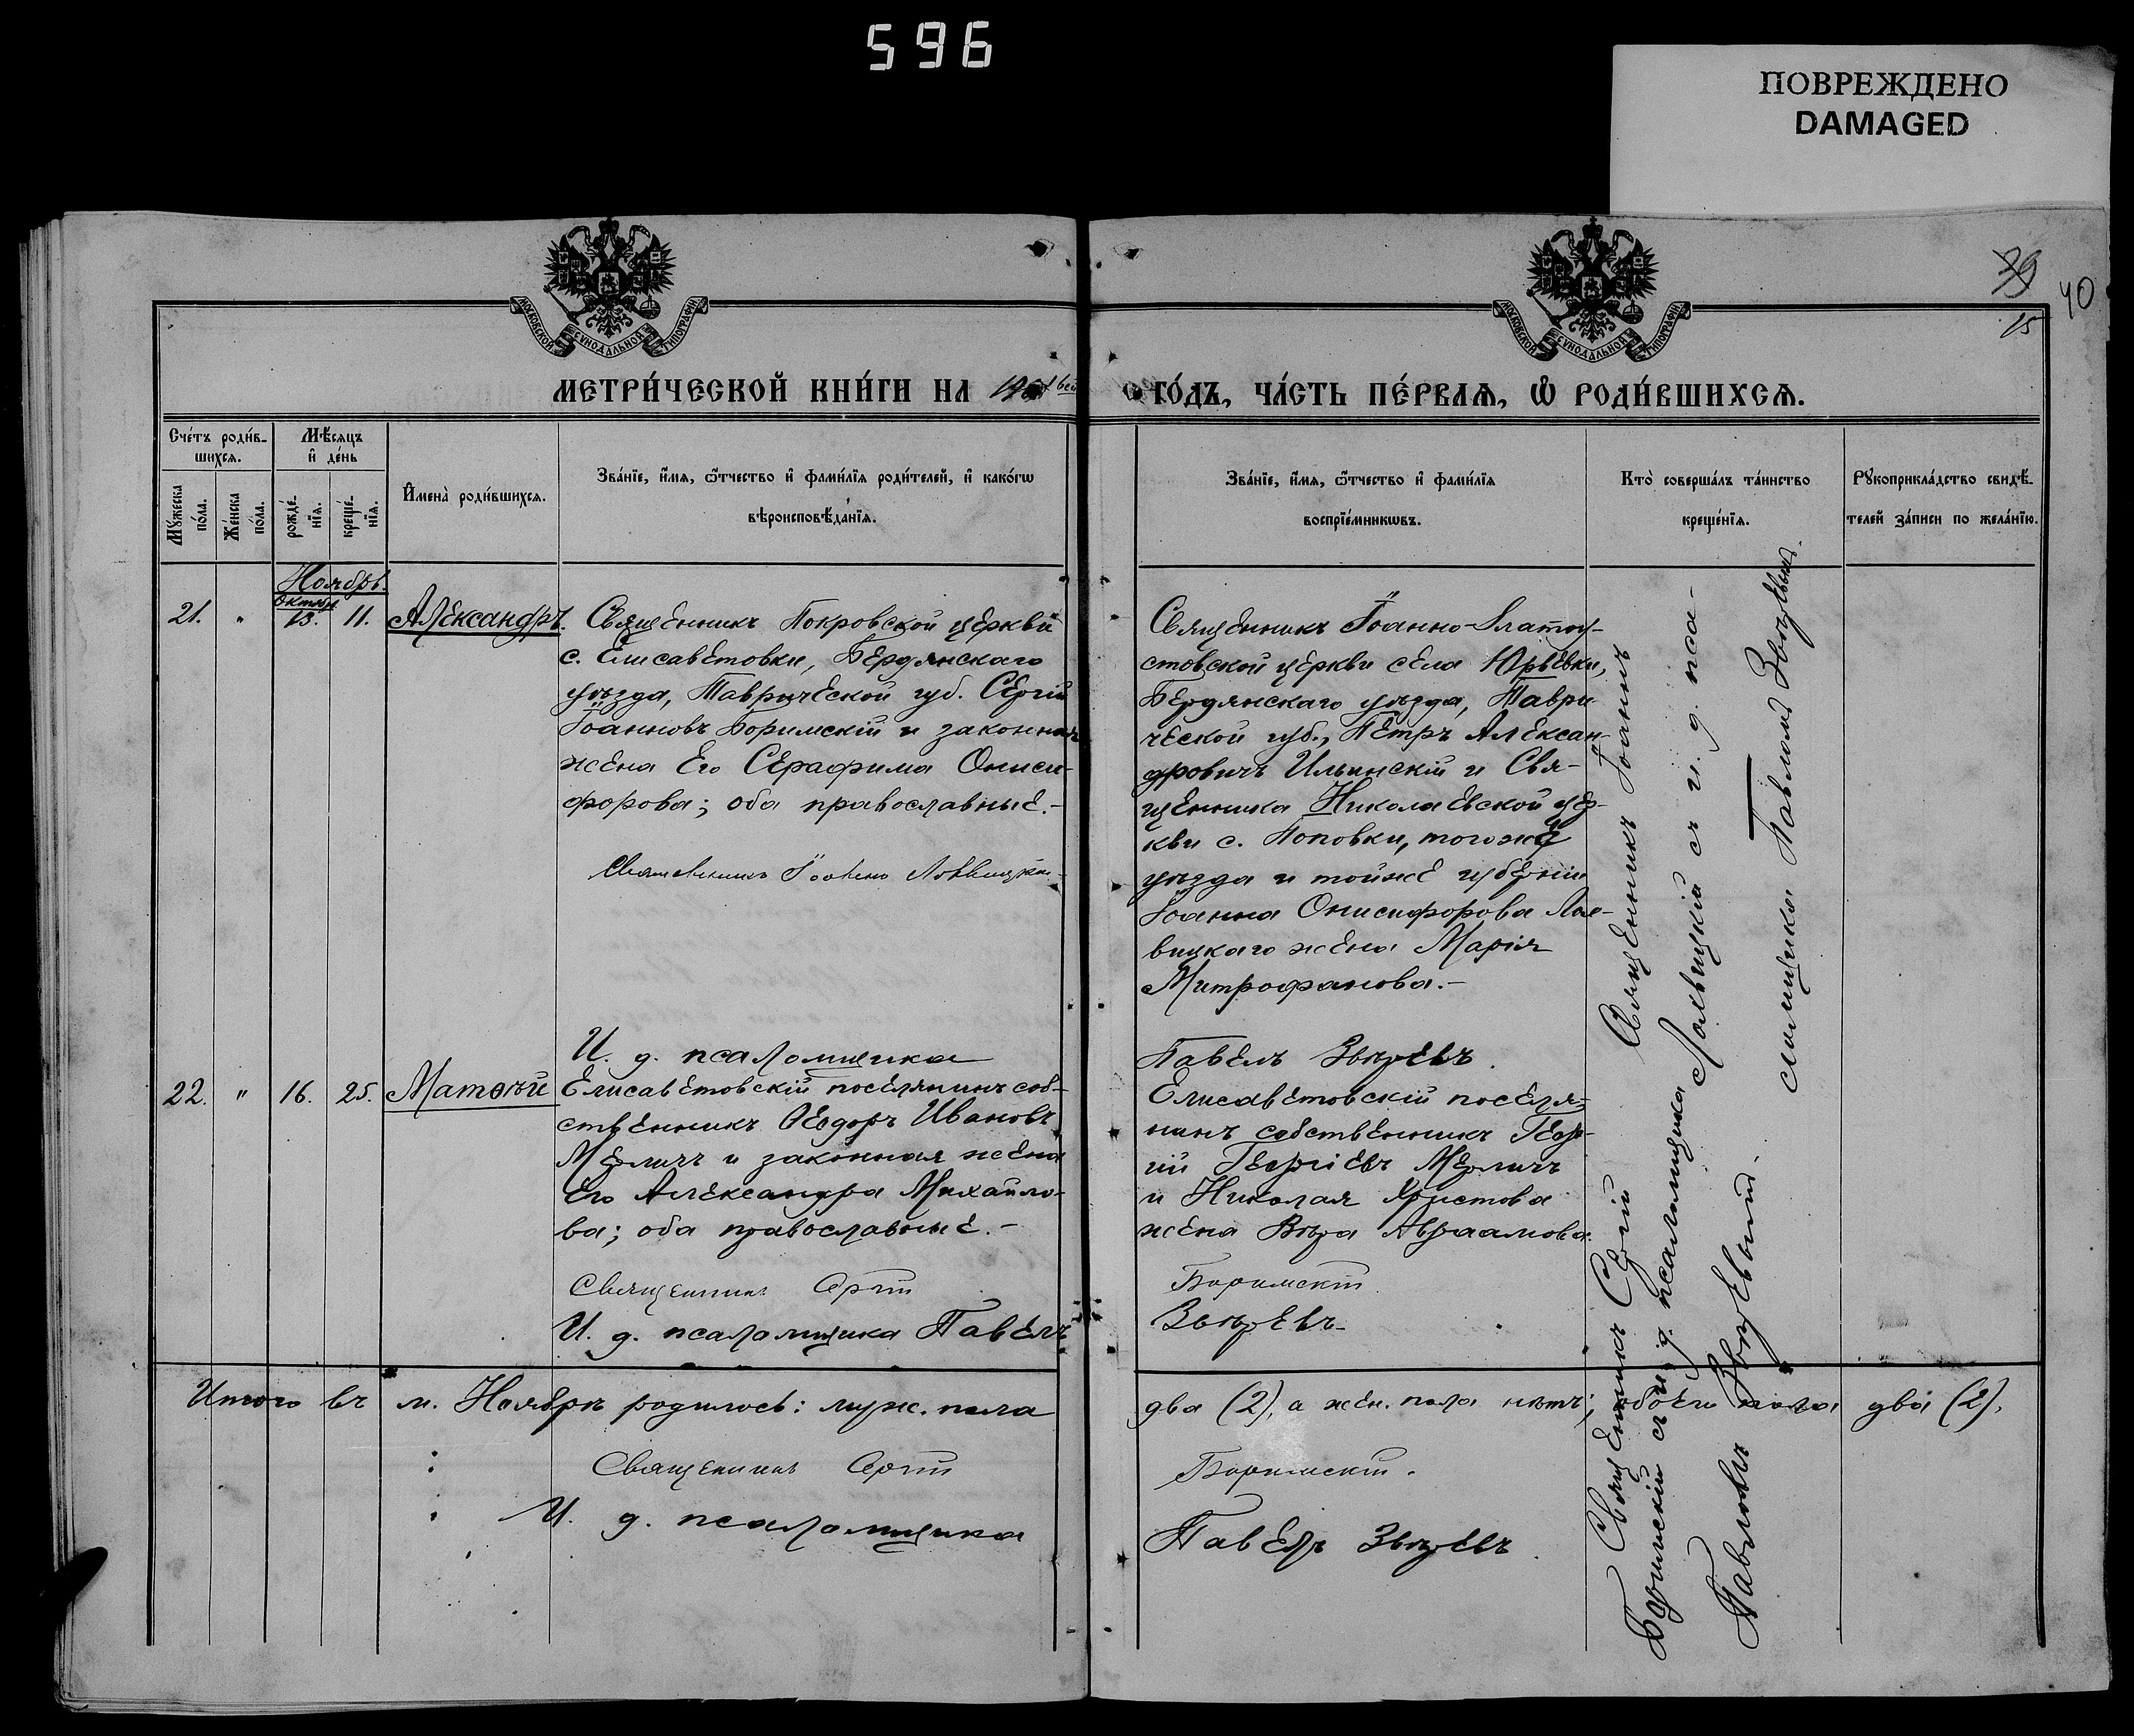 596
ПОВРЕЖДЕНО
DAMAGED
39
40
15
МОСКОВСКОЙ СѴНОДАЛЬНОЙ ТИПОГРАФІИ
МОСКОВСКОЙ СѴНОДАЛЬНОЙ ТИПОГРАФІИ
МЕТРИ́ЧЕСКОЙ КНИ́ГИ НА
ГО́ДЪ, ЧА́СТЬ ПЕ́РВАѦ, Ѡ РОДИ́ВШИХСѦ.
Сче́тъ роди́в-
шихсѧ.
Мѣ́сѧцъ
и҆ де́нь
Мꙋ́жеска
по́ла.
Же́нска
по́ла.
рожде́-
нїѧ.
креще́-
нїѧ.
И҆мена̀ роди́вшихсѧ.
Зва́нїе, и҆́мѧ, ѻ҆́тчество и҆ фами́лїѧ роди́телей, и҆ како́гѡ
вѣроисповѣ́данїѧ.
Зва́нїе, и҆́мѧ, ѻ҆́тчество и҆ фами́лїѧ
воспрїе́мникѡвъ.
Кто̀ соверша́лъ та́инство
креще́нїѧ.
Рꙋкоприкла́дство свидѣ́-
телей за́писи по жела́нїю.
Ноябрь.
Октяб.
21. " 13. 11. Александръ.
Священникъ Покровской церкви
с. Елисаветовки, Бердянскаго
уѣзда, Таврической губ. Сергій
Іоанновъ Боримскій и законная
жена его Серафима Ониси-
форова; оба православные.-
Священникъ Іоаннъ
Священникъ Іоанно-Златоу-
стовской церкви села Юрьевки,
Бердянскаго уѣзда, Таври-
ческой губ., Петръ Алексан-
дровичъ Ильинскій и Свя-
щенника Николаевской цер-
кви с. Поповки, тогоже
уѣзда и тойже губерніи
Іоанна Онисифорова
вицкаго жена Марія
Митрофанова.-
Священникъ Іоаннъ
съ и. д. пса-
ломщика Павломъ Звѣревымъ.
И. д. псаломщика
Павелъ Звѣревъ.
22. " 16. 25. Матѳѣй
Елисаветовскій поселянинъ соб-
ственникъ Ѳеодоръ Ивановъ
Мерличъ и законная жена
его Александра Михайло-
ва; оба православные.-
Священникъ Сергій
И. д. псаломщика Павелъ
Елисаветовскій поселя-
нинъ собственникъ Геор-
гій Георгіевъ Мерличъ
и Николая Христова
жена Вѣра Авраамова.
Боримскій
Звѣревъ.
Священникъ Сергій
Боримскій съ и. д. псаломщика
Павломъ Звѣревымъ.
Итого въ м. Ноябрѣ родилось: муж. пола
два (2), а жен. пола нѣтъ; обоего пола два (2).
Священникъ Сергій
Боримскій.
И. д. псаломщика
Павелъ Звѣревъ.